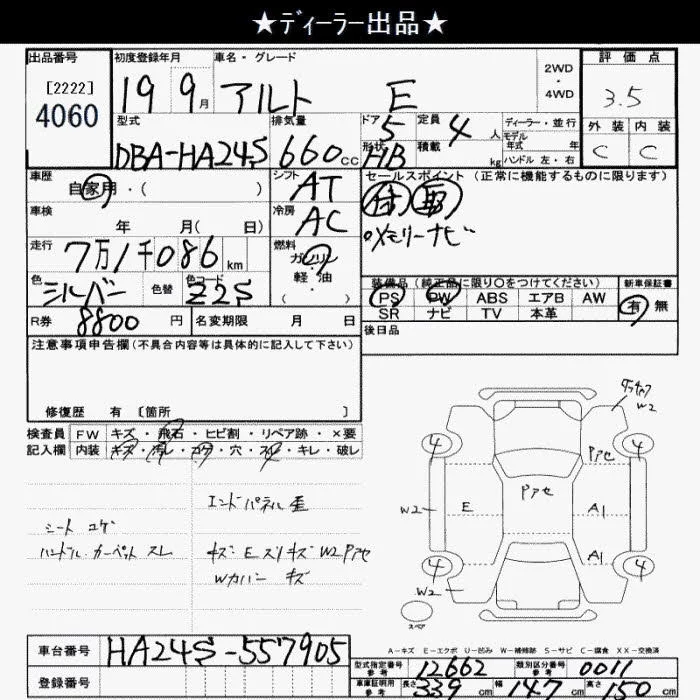 ★ディーラー出品★
出品番号 初度登録年月 車名・グレード 2WD・4WD 評価点
[2222] 4060 19年 9月 アルト E 3.5
外装 内装
C C
型式 排気量 ドア 定員 ディーラー・並行
DBA-HA24S 660cc 5 4人 モデル年式 年
形状 積載 HB kg ハンドル 左・右
車歴 自家用・( ) シフト AT セールスポイント (正常に機能するものに限ります)
車検 年 月( 日) 冷房 AC 付 取
メモリーナビ
走行 7万1千086km 燃料 ガソリン 軽・油 ( ・ )
装備品 (純正品に限り○をつけてください) 新車保証書
色 シルバー 色替 色コード Z2S PS PW ABS エアB AW 有 無
SR ナビ TV 本革
R券 8800円 名変期限 月 日 後日品
注意事項申告欄(不具合内容等は具体的に記入して下さい)
修復歴 有 〔箇所 〕
検査員 FW キズ・飛石・ヒビ割・リペア跡・×要
記入欄 内装 キズ・汚レ・コゲ・穴・スレ・キレ・破レ
エンドパネル 歪
シート コゲ
ハンドル・カーペット スレ キズ エスリキズ W2 Pアセ
Wカバー キズ
W2
4 4
Pアセ
Pアセ
W2 E A1
A1
4 4
W2
スペア
A-キズ E-エクボ U-凹み W-補修跡 S-サビ C-腐食 XX-交換済
車台番号 HA24S-557905
型式指定番号 参考 12662 類別区分番号 参考 0011
登録番号 車庫証明用 参考 長さ 339cm 幅 147cm 高さ 150cm